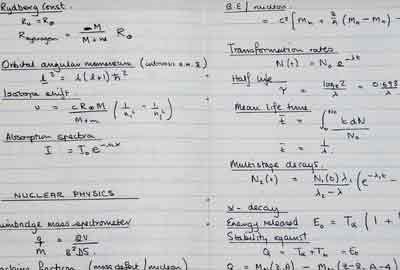 Rydberg Const.
R∞ = R∞
R hydrogen = M / M + m R∞
Orbital angular momentum
l² = l(l+1)ħ²
Isotope shift
ν = cR∞M / M+m (1/n₁² − 1/n₂²)
Absorption spectra
I = I₀e^-nx
NUCLEAR PHYSICS
mass spectrometer
q/M =
fraction (mass defect / nucleon)
B.E / nucleon
= c² [Mn + Z/A (MH − Mn) −
Transformation rates
N(t) = N₀ e^-λt
Half life
τ = loge2 / λ = 0.693 / λ
Mean life time
t̄ = ∫ t dN / N₀
t̄ = 1/λ
Multistage decays
N₂(t) = N₁(0) λ₁ / λ₂ − λ₁ (e^-λ₁t −
α - decay
Energy released E₀ = Tα (1 +
Stability against
Q = Tα + Tb = E₀
Q = M (Z,A) − M (Z-2, A-4)